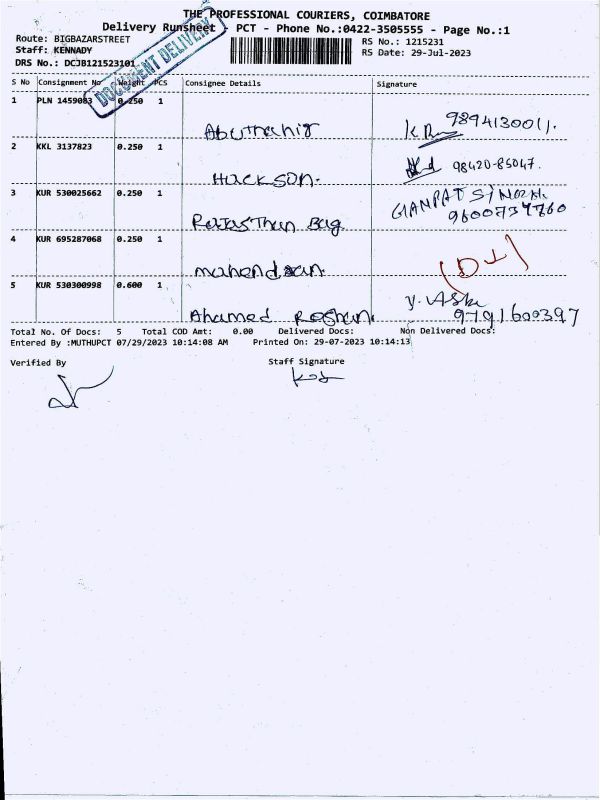 THE PROFESSIONAL COURIERS, COIMBATORE
Delivery Runsheet - PCT - Phone No.:0422-3505555 - Page No.:1
Route: BIGBAZARSTREET RS No.: 1215231
Staff: KENNADY RS Date: 29-Jul-2023
DRS No.: DCJB121523101
DOCUMENT DELIVERY
S No Consignment No Weight PCS Consignee Details Signature
1 PLN 1459083 0.250 1
Abuthahir 9294130011.
2 KKL 3137823 0.250 1
Huckson. 98420-85047.
3 KUR 530025662 0.250 1
Rajasthan Bag GANPAT SINGH
9600737760
4 KUR 695287068 0.250 1
mahendran.
5 KUR 530300998 0.600 1
Ahamed Roshan. 9791600397
Total No. Of Docs: 5 Total COD Amt: 0.00 Delivered Docs: Non Delivered Docs:
Entered By :MUTHUPCT 07/29/2023 10:14:08 AM Printed On: 29-07-2023 10:14:13
Verified By Staff Signature